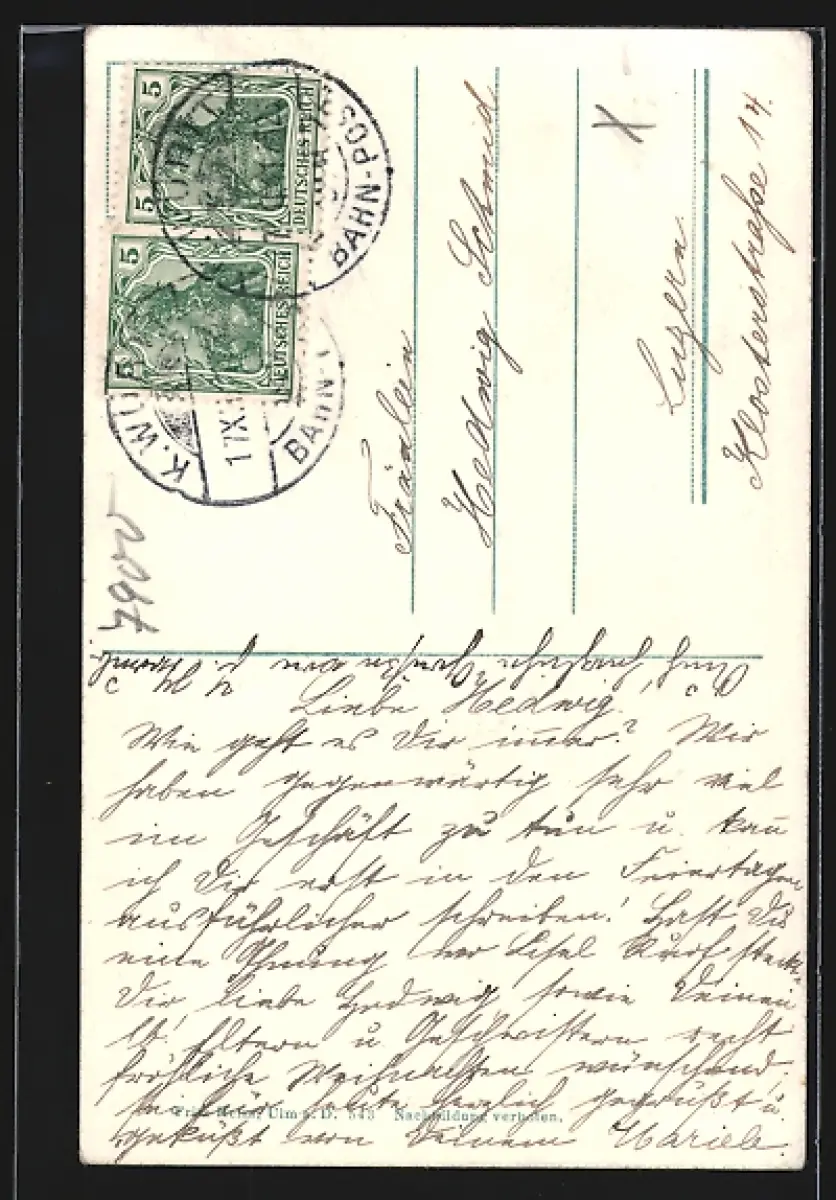 5
5
DEUTSCHES REICH
BAHN-POS
5
5
DEUTSCHES REICH
K. WÜ
17 X
BAHN-
7900
X
Fräulein
Hedwig Schmid
Luzern
Klosterstraße 14.
Auch herzliche Grüße von
Liebe Hedwig.
Wie geht es Dir immer? Wir
haben gegenwärtig sehr viel
im Geschäft zu tun u. kann
ich Dir erst in den Feiertagen
ausführlicher schreiben! Hast Du
eine Ahnung wo Lisel steckt.
Dir liebe Hedwig sowie Deinen
lb. Eltern u Geschwistern recht
fröhliche Weihnachten wünschend,
sei für heute herzlich gegrüßt u.
geküßt von Deinem Mariele.
Ulm a. D. 343 Nachbildung verboten.